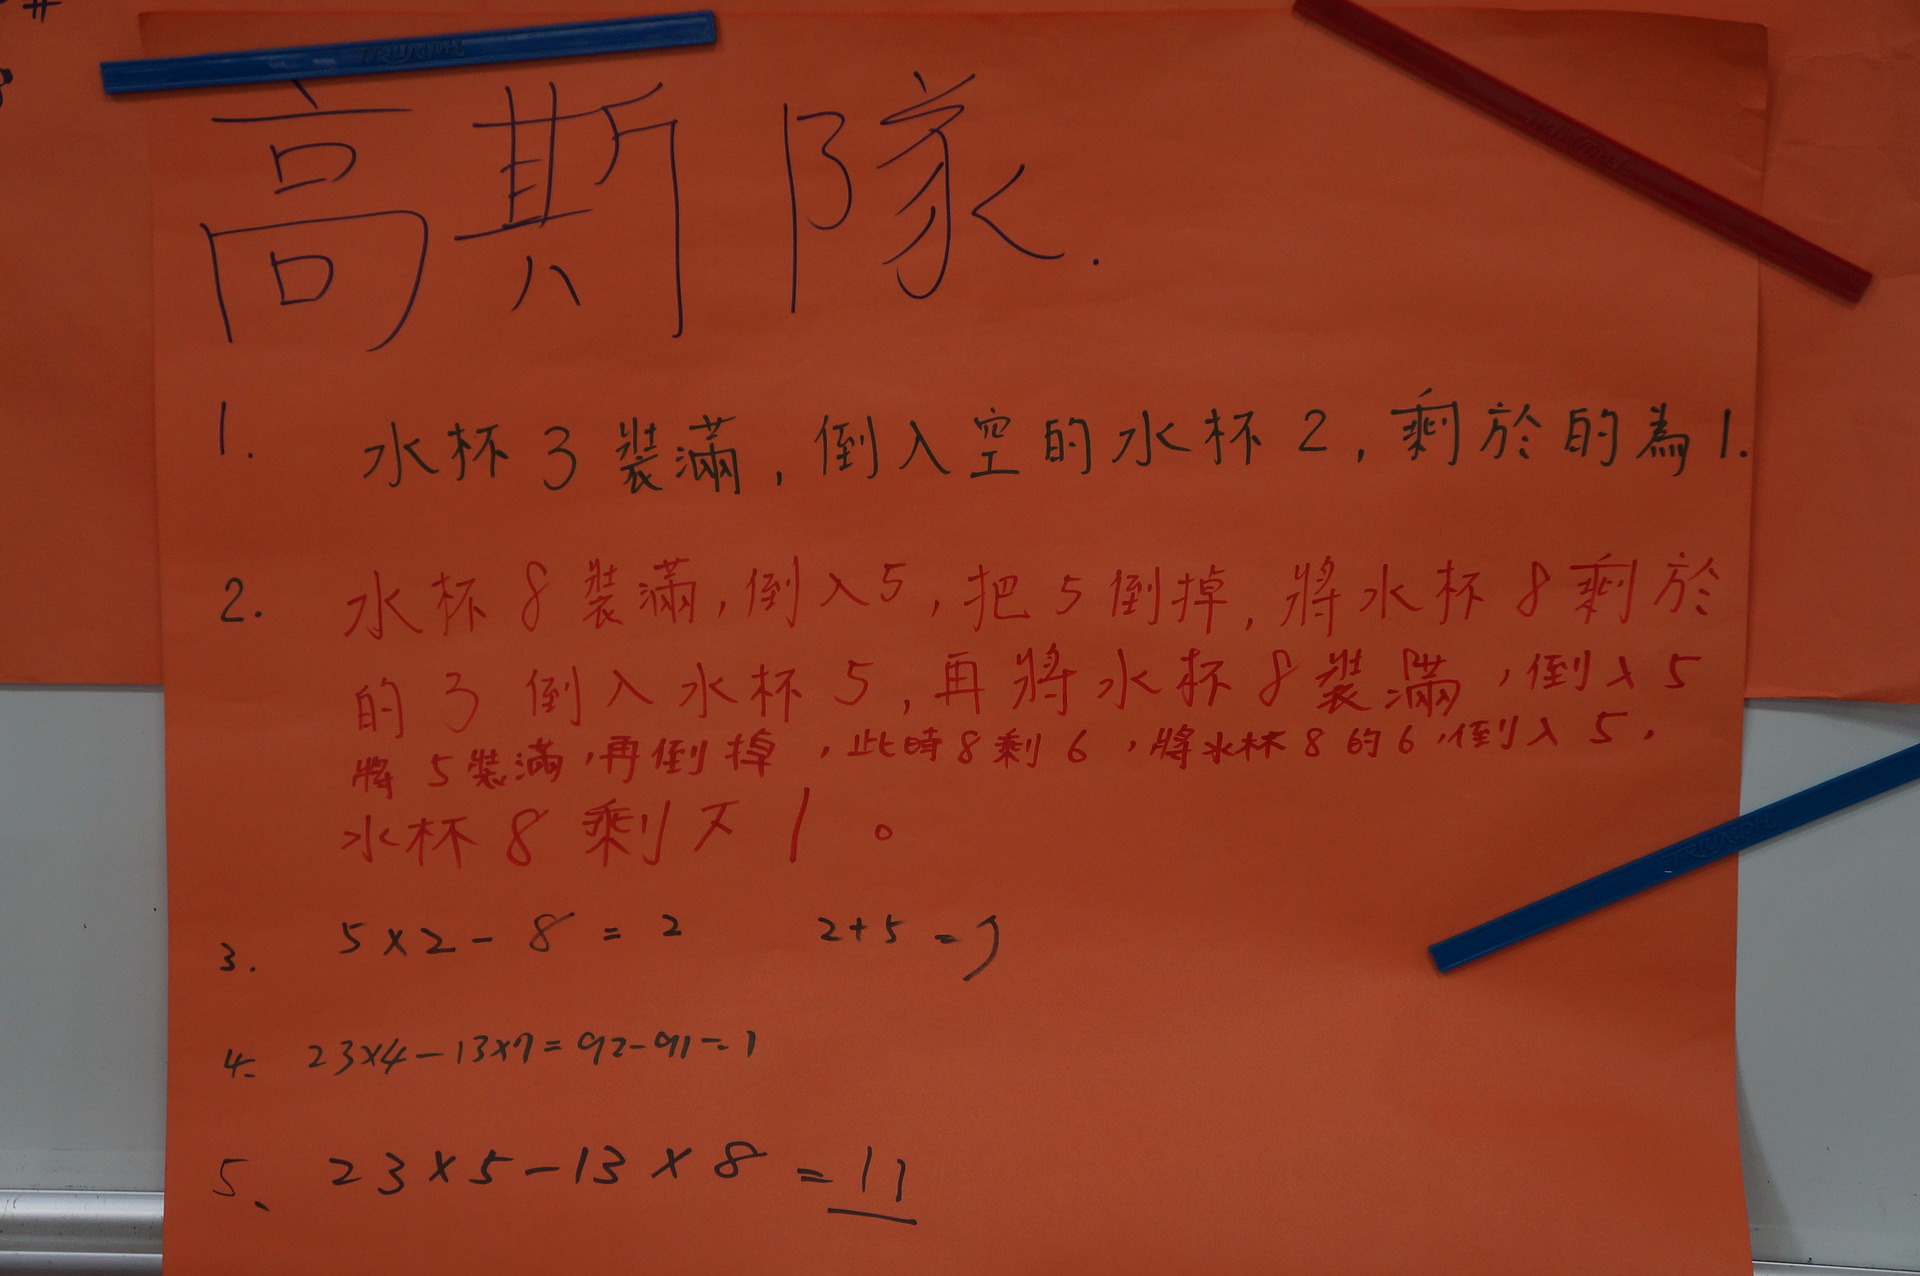 TRIUMPH
高斯隊.
1. 水杯3裝滿,倒入空的水杯2,剩於的為1.
2. 水杯8裝滿,倒入5,把5倒掉,將水杯8剩於
的3倒入水杯5,再將水杯8裝滿,倒入5
將5裝滿,再倒掉,此時8剩6,將水杯8的6,倒入5,
水杯8剩下1。
3. 5×2-8=2 2+5=7
4. 23×4-13×7=92-91=1
5、 23×5-13×8=11
TRIUMPH